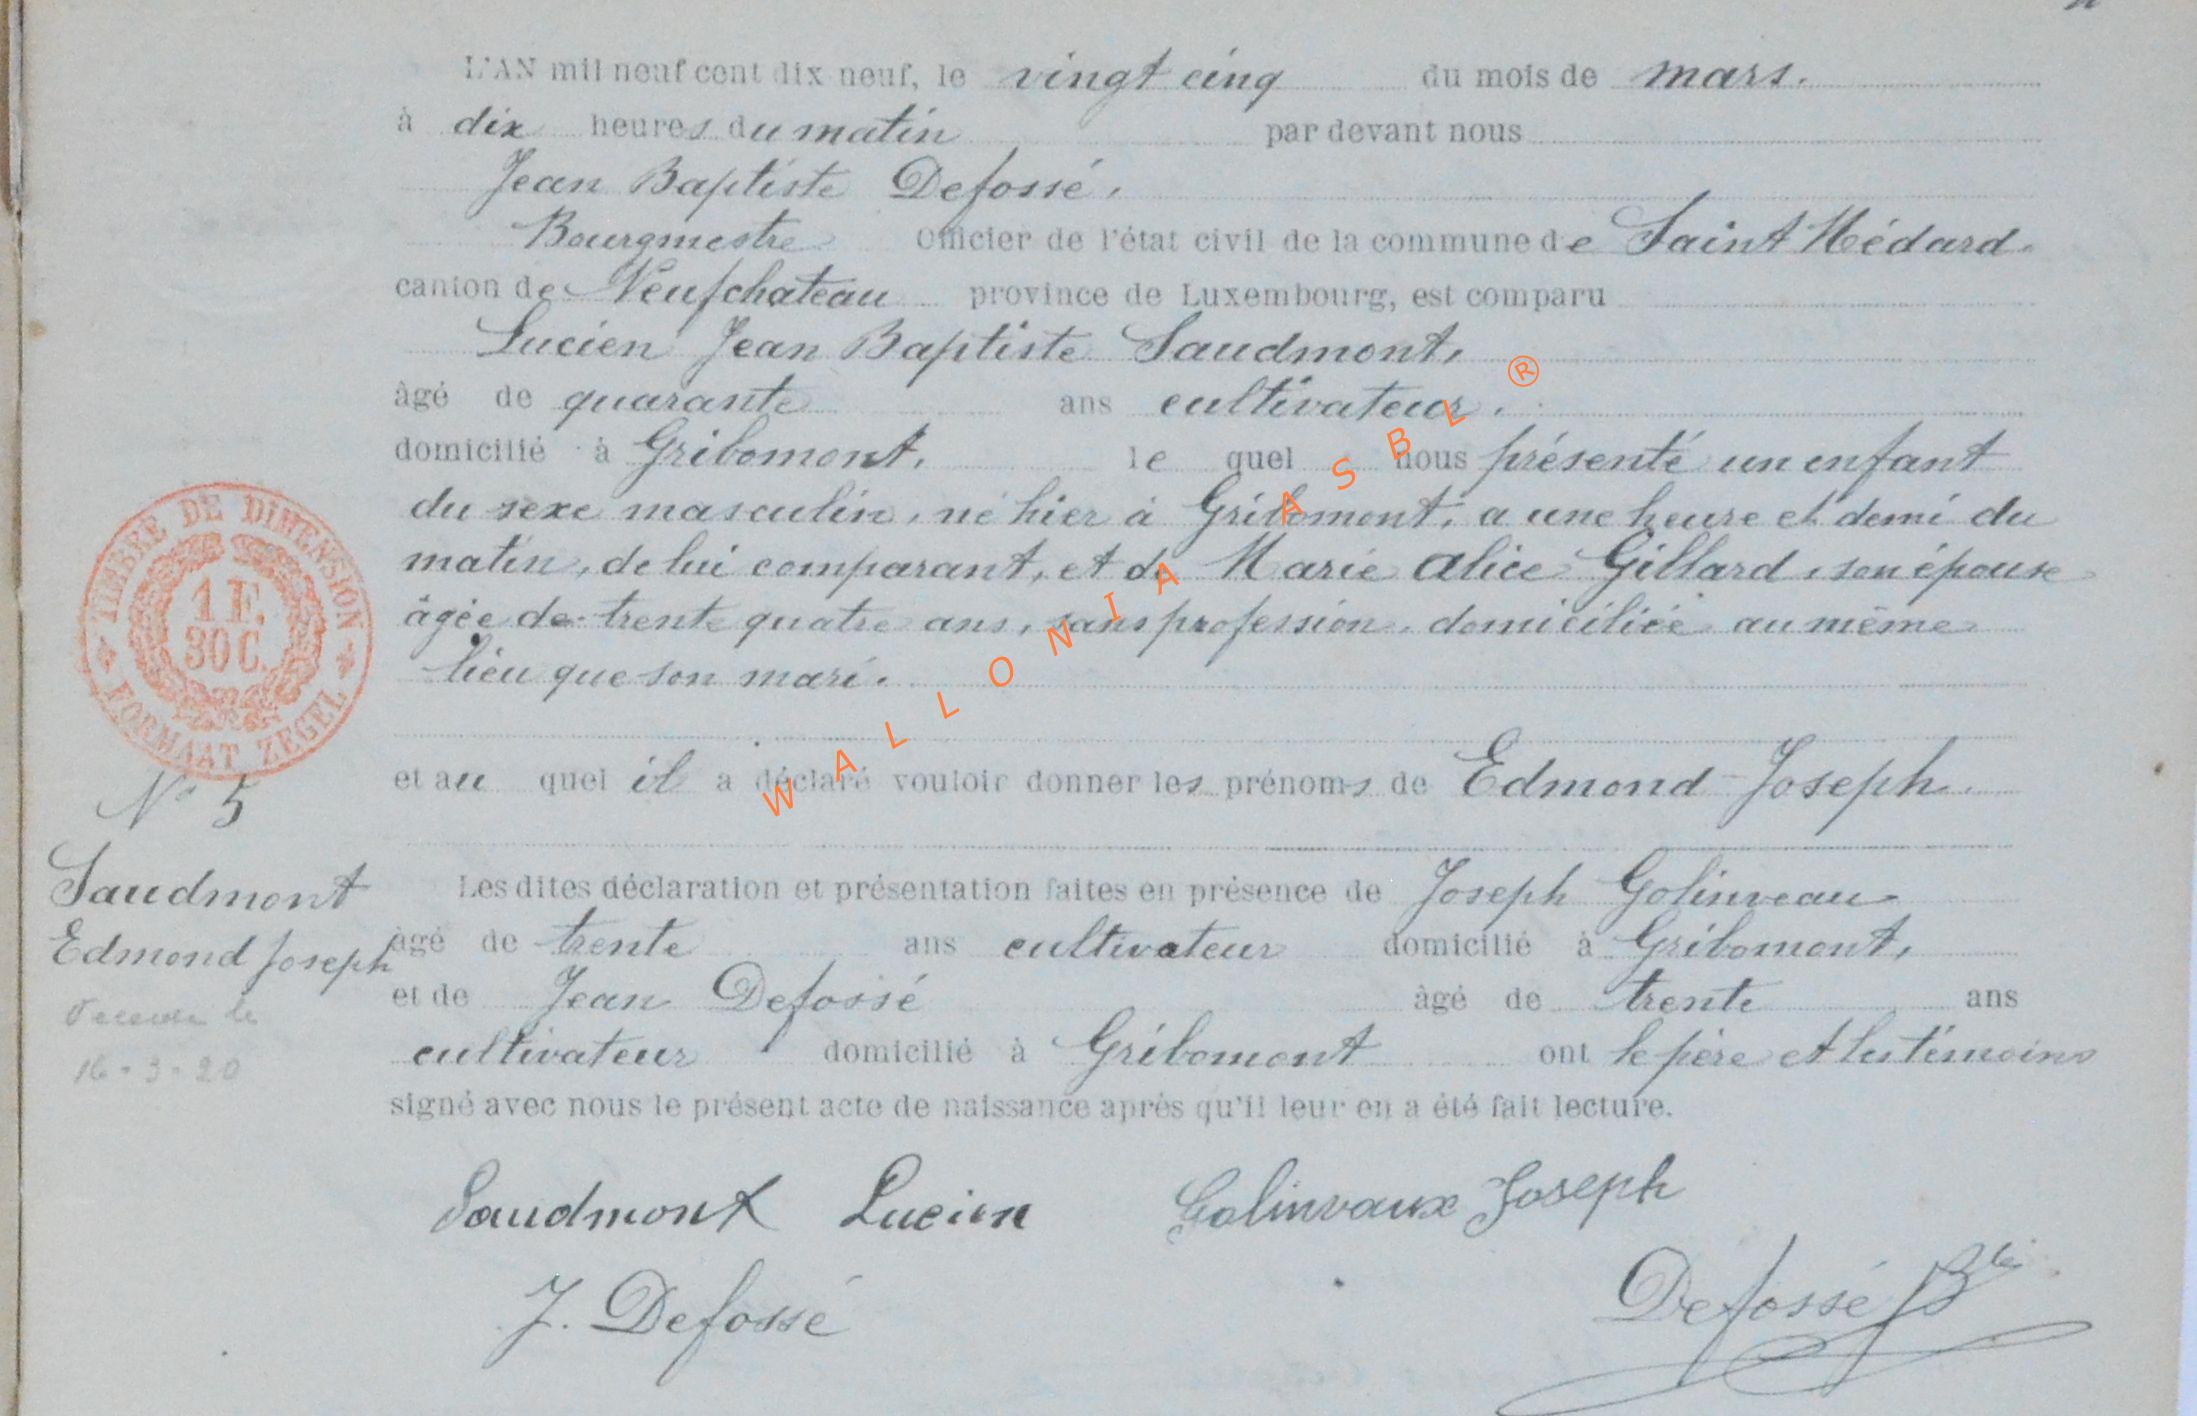 L'AN mil neuf cent dix neuf, le vingt cinq du mois de mars.
à dix heures du matin par devant nous
Jean Baptiste Defossé,
Bourgmestre Officier de l'état civil de la commune de Saint Médard
canton de Neufchateau province de Luxembourg, est comparu
Lucien Jean Baptiste Saudmont,
âgé de quarante ans cultivateur,
domicilié à Gribomont, le quel nous présenté un enfant
du sexe masculin, né hier à Gribomont, a une heure et demi du
matin, de lui comparant, et de Marie Alice Gillard, son épouse
âgée de trente quatre ans, sans profession, domiciliée au même
lieu que son mari.
et au quel il a déclaré vouloir donner les prénoms de Edmond Joseph.
Les dites déclaration et présentation faites en présence de Joseph Golinveau
âgé de trente ans cultivateur domicilié à Gribomont,
et de Jean Defossé âgé de trente ans
cultivateur domicilié à Gribomont ont le père et les témoins
signé avec nous le présent acte de naissance après qu'il leur en a été fait lecture.
Saudmont Lucien Golinvaux Joseph
J. Defossé Defossé Bte
TIMBRE DE DIMENSION
1 F.
30 C.
FORMAAT ZEGEL
N° 5
Saudmont
Edmond Joseph
le
16-3-20
WALLONIA ASBL ®